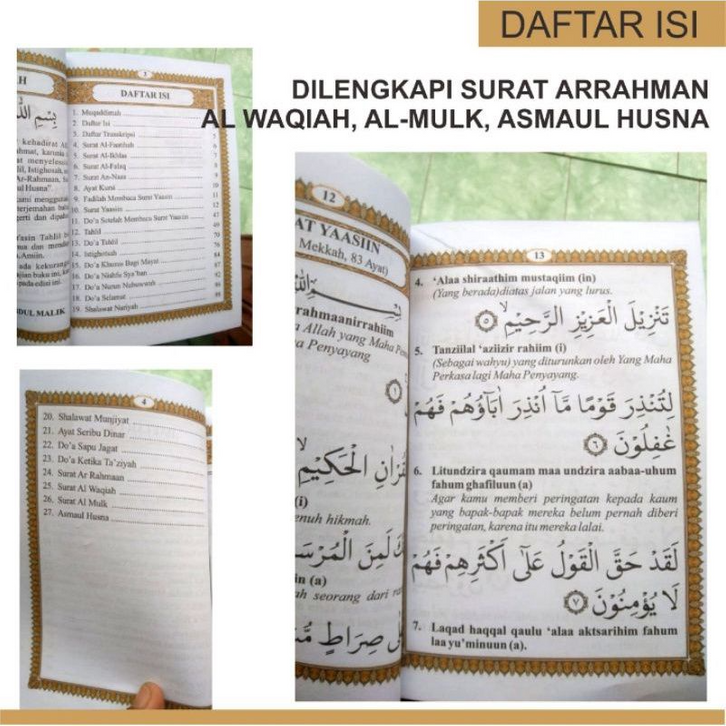 DAFTAR ISI
DILENGKAPI SURAT ARRAHMAN
AL WAQIAH, AL-MULK, ASMAUL HUSNA
3
DAFTAR ISI
1. Muqaddimah
2. Daftar Isi
3. Daftar Transkripsi
4. Surat Al-Faatihah
5. Surat Al-Ikhlas
6. Surat Al-Falaq
7. Surat An-Naas
8. Ayat Kursi
9. Fadilah Membaca Surat Yaasin
10. Surat Yaasin
11. Do'a Setelah Membaca Surat Yaasin
12. Tahlil
13. Do'a Tahlil
14. Istighotsah
15. Do'a Khusus Bagi Mayat
16. Do'a Nishfu Sya'ban
17. Do'a Nurun Nubuwwah
18. Do'a Selamat
19. Shalawat Nariyah
4
20. Shalawat Munjiyat
21. Ayat Seribu Dinar
22. Do'a Sapu Jagat
23. Do'a Ketika Ta'ziyah
24. Surat Ar Rahmaan
25. Surat Al Waqiah
26. Surat Al Mulk
27. Asmaul Husna
12
AT YAASIIN
Mekkah, 83 Ayat)
rahmaanirrahiim
a Allah yang Maha
a Penyayang
(i)
enuh hikmah.
in (a)
ah seorang dari
13
4. 'Alaa shiraathim mustaqiim (in)
(Yang berada)diatas jalan yang lurus.
تَنْزِيْلَ الْعَزِيْزِ الرَّحِيْمِۙ ٥
5. Tanziilal 'aziizir rahiim (i)
(Sebagai wahyu) yang diturunkan oleh Yang Maha
Perkasa lagi Maha Penyayang.
لِتُنْذِرَ قَوْمًا مَّآ اُنْذِرَ اٰبَاۤؤُهُمْ فَهُمْ
غٰفِلُوْنَ ٦
6. Litundzira qaumam maa undzira aabaa-uhum
fahum ghafiluun (a)
Agar kamu memberi peringatan kepada kaum
yang bapak-bapak mereka belum pernah diberi
peringatan, karena itu mereka lalai.
لَقَدْ حَقَّ الْقَوْلُ عَلٰٓى اَكْثَرِهِمْ فَهُمْ
لَا يُؤْمِنُوْنَ ٧
7. Laqad haqqal qaulu 'alaa aktsarihim fahum
laa yu'minuun (a).